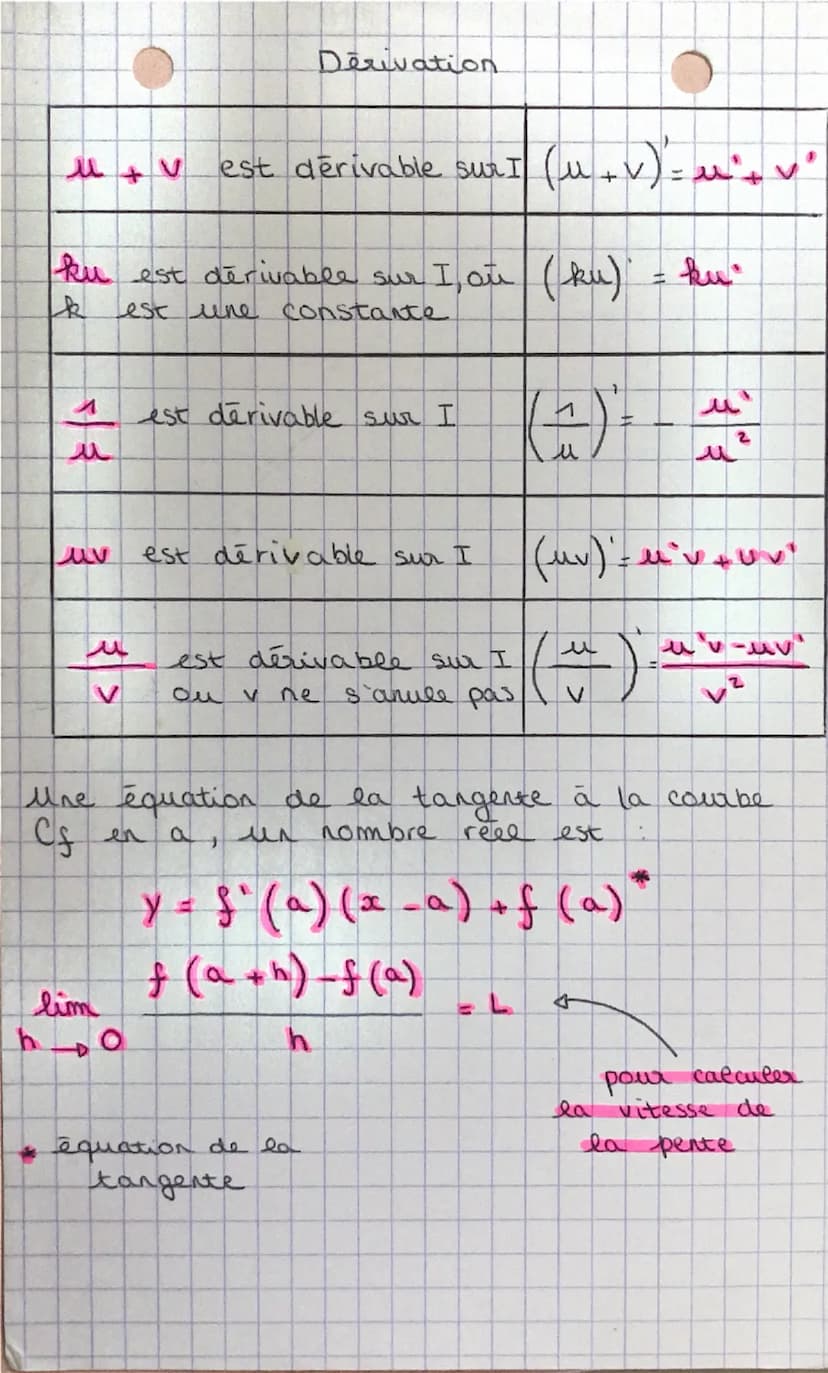 Dérivation
u + v est dérivable sur I (u + v)' = u' + v'
ku est dérivable sur I, où (ku)' = ku'
k est une constante
1/u est dérivable sur I (1/u)' = - u'/u²
uv est dérivable sur I (uv)' = u'v + uv'
u/v est dérivable sur I (u/v)' = u'v - uv'/v²
ou v ne s'anule pas
Une équation de la tangente à la courbe
Cf en a, un nombre réel est :
y = f'(a)(x - a) + f(a)*
lim h → 0 f(a + h) - f(a)/h = L
pour calculer
la vitesse de
la pente
* équation de la
tangente